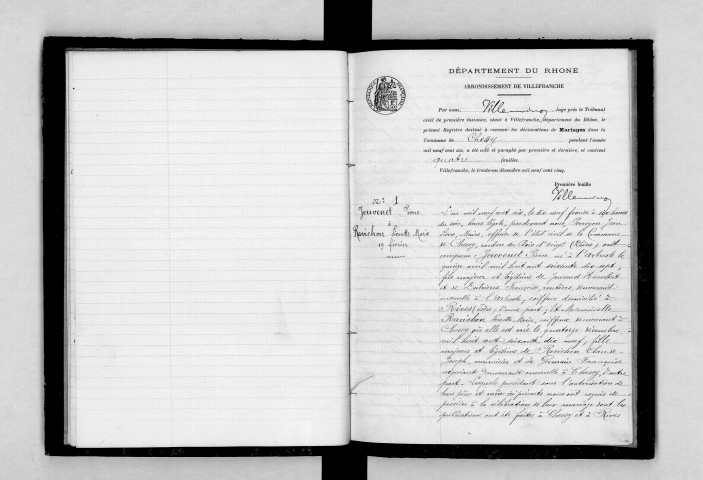 DÉPARTEMENT DU RHONE
ARRONDISSEMENT DE VILLEFRANCHE
Par nous, Juge près le Tribunal
civil de première instance, séant à Villefranche, département du Rhône, le
présent Registre destiné à recevoir les déclarations de Mariages dans la
Commune de Chessy pendant l'année
mil neuf cent six, a été coté et paraphé par première et dernière, et contient
quatre feuillets
Villefranche, le trente-un décembre mil neuf cent cinq.
Première feuille
N° 1
Jouvenet Pierre
à
Ravichon Marie
19 février
L'an mil neuf cent six, le dix neuf février à
du soir, heure légale, pardevant nous,
Maire, officier de l'état civil de la Commune
de Chessy, canton du Bois d'Oingt (Rhône) ont
comparu: Jouvenet Pierre né à l'Arbresle le
quinze avril mil huit cent soixante dix sept,
fils majeur et légitime de Jouvenet
et de François, rentiers, demeurant
ensemble à l'Arbresle, coiffeur domicilié à
Rives (Isère) d'une part; Et Mademoiselle
Ravichon Marie, coiffeuse demeurant à
Chessy où elle est née le quatorze décembre
mil huit cent soixante dix neuf, fille
majeure et légitime de Ravichon Claude
Joseph, et de Françoise
négociants demeurant ensemble à Chessy, d'autre
part. Lesquels procédant sous l'autorisation de
leurs pères et mères ici présents nous ont requis de
procéder à la célébration de leur mariage dont les
publications ont été faites à Chessy et à Rives